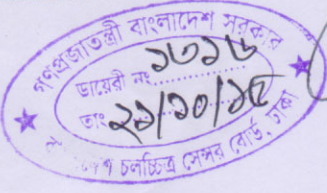 গণপ্রজাতন্ত্রী বাংলাদেশ সরকার
ডায়েরী নং ১৩১৬
তাং ২১/১০/১৫
চলচ্চিত্র সেন্সর বোর্ড, ঢাকা